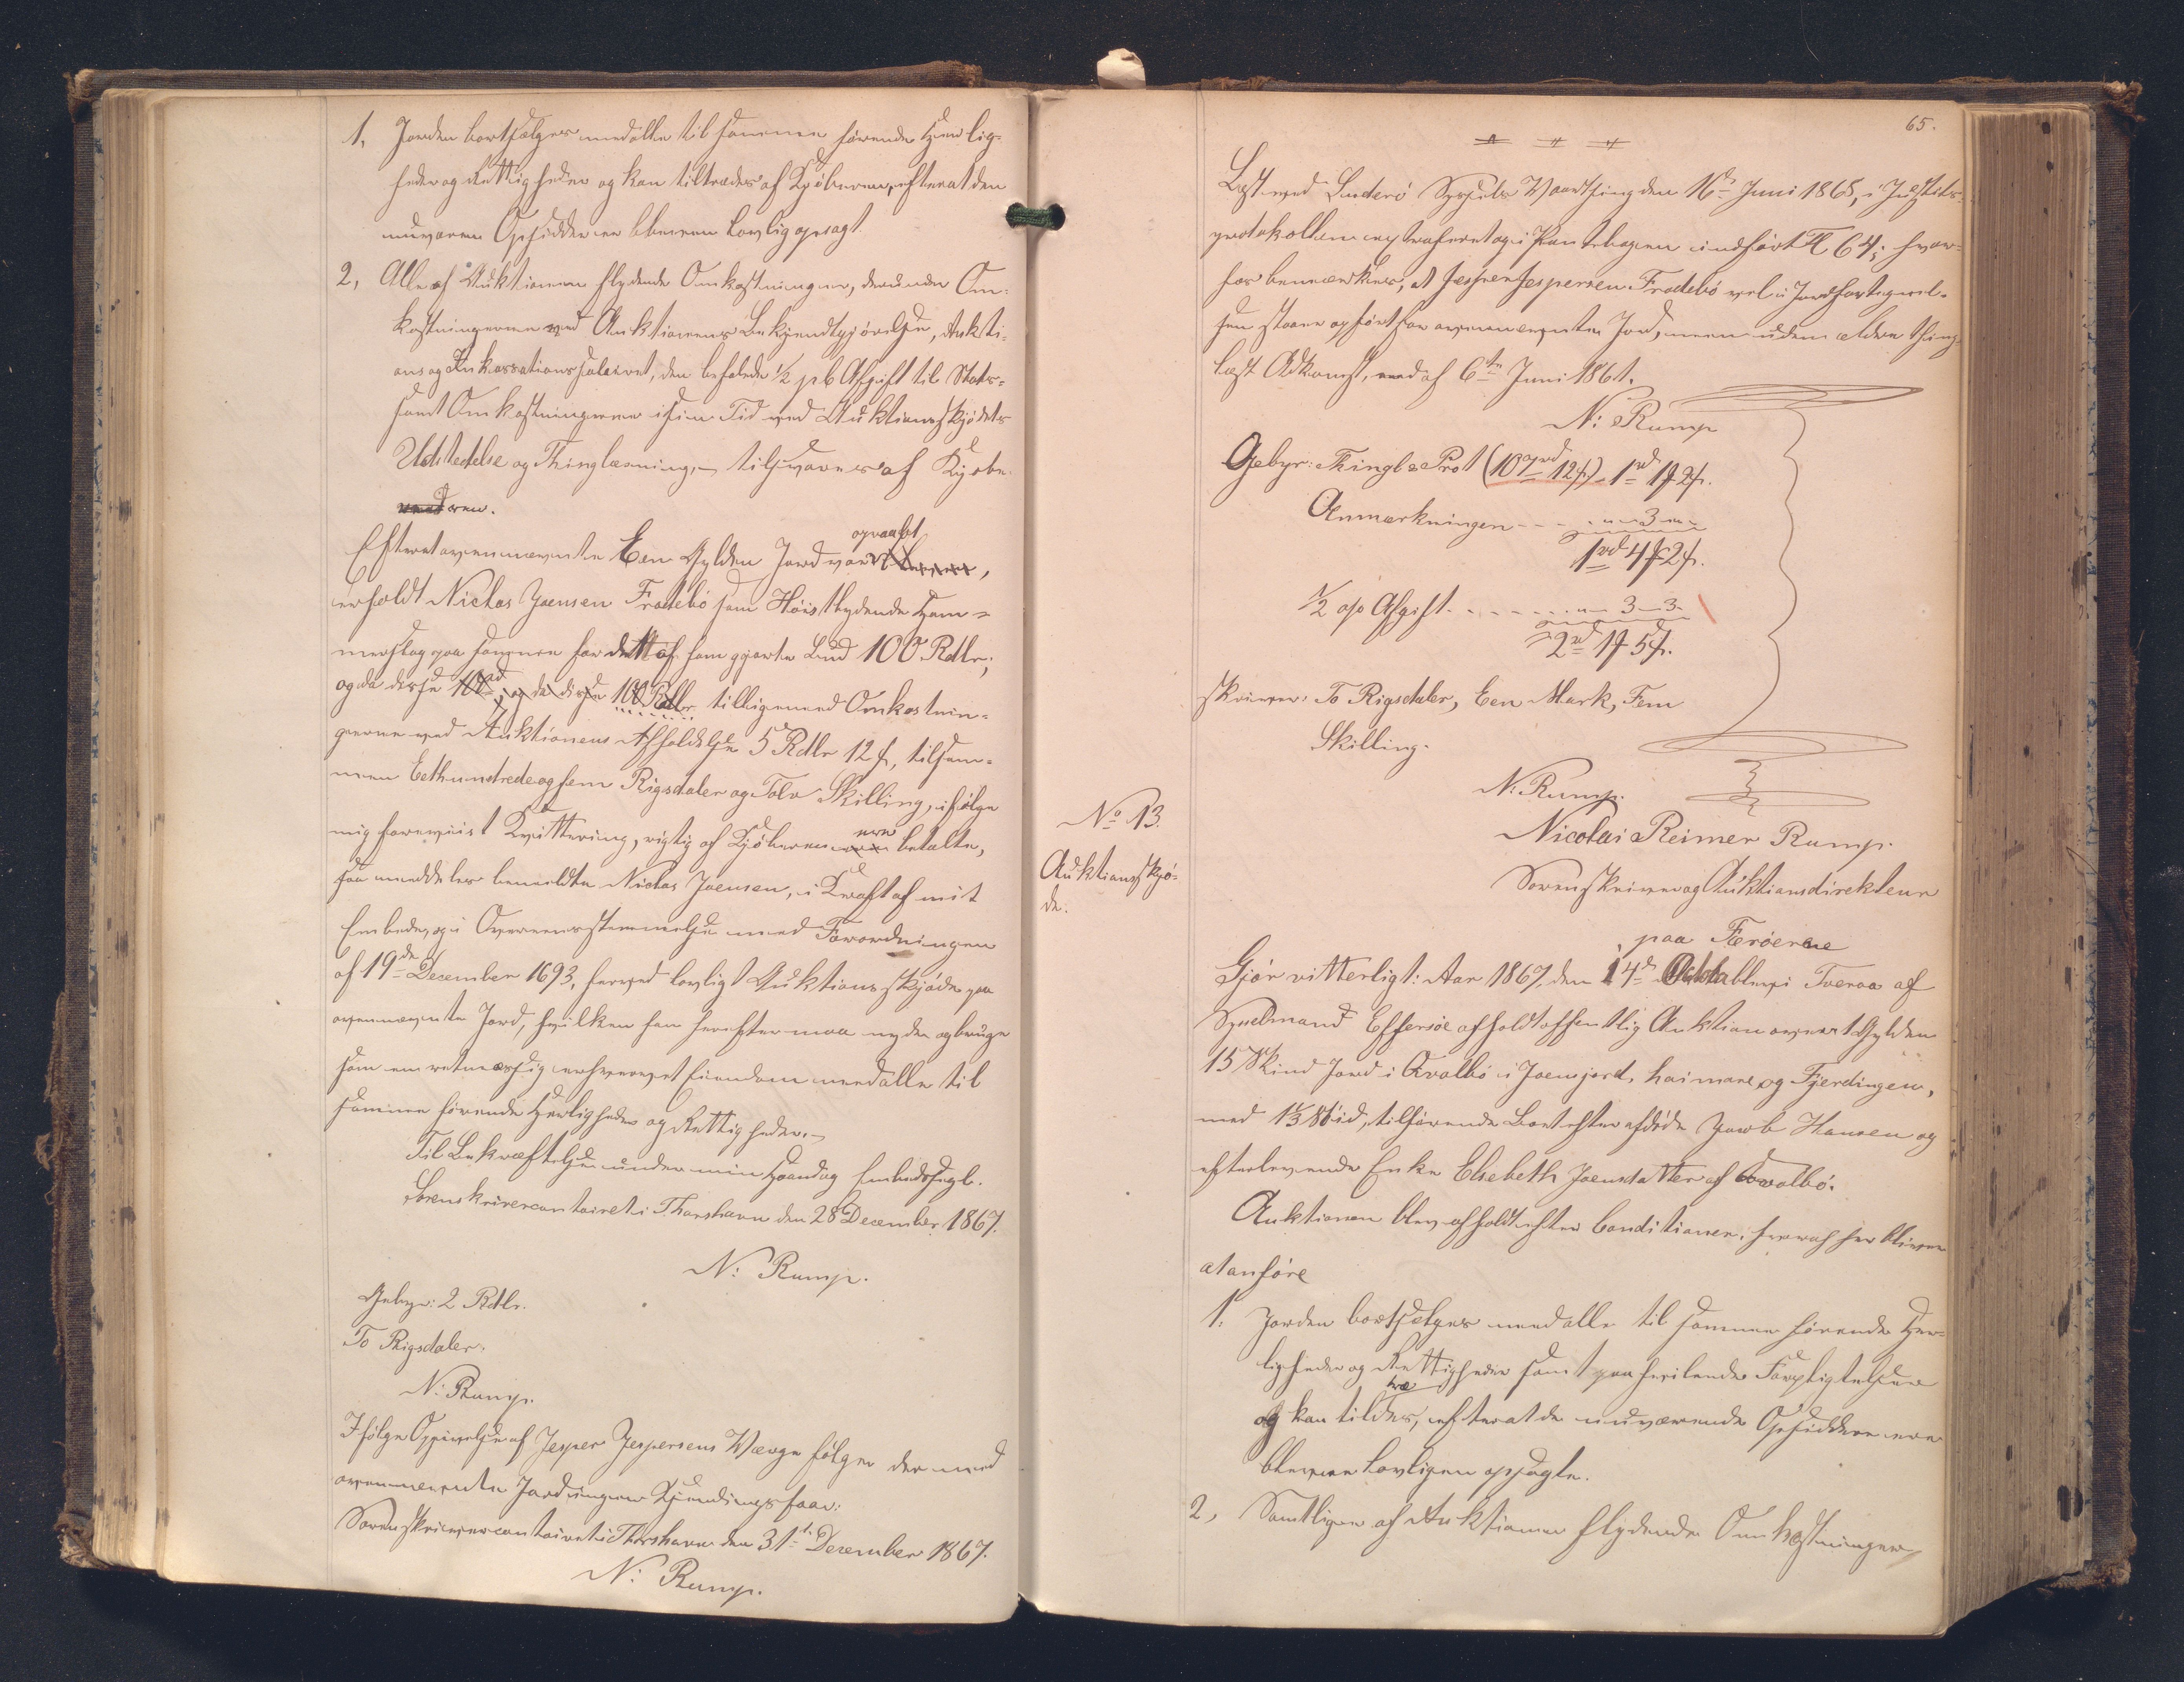 1, Jorden bortsælges med alle til samme hørende Herlig-
heder og Rettigheder og kan tiltrædes af Kjøberen, efterat den
nuværen Opsidder er bleven lovlig opsagt.
2, Alle af Auktionen flydende Omkostninger, derunder Om-
kostningerne ved Auktionens Bekjendtgjørelse, Aukti-
ons og Inkassationssalairet, den befalede ½ pC Afgift til Stats-
samt Omkostningerne i sin Tid ved Auktionsskjødets
Udstedelse og Thinglæsning, tilsvares af Kjøbe-
ren.
Efterat ovennævnte Een Gylden Jord var opraabt,
erholdt Niclas Joensen Frodebø som Høistbydende Ham-
merslag paa samme for dett af ham gjorte Bud 100 Rdlr;
og da disse 100 rd, og da disse 100 Rdlr tilligemed Omkostnin-
gerne ved Auktionens Afholdelse 5 Rdlr 12 s, tilsam-
men Eethundrede og fem Rigsdaler og Tolv Skilling, ifølge
mig foreviist Kvittering, rigtig af Kjøberen ere betalte,
saa meddeles bemeldte Niclas Joensen, i Kraft af mit
Embede, og i Overeensstemmelse med Forordningen
af 19de December 1693, herved lovligt Auktionsskjøde paa
ovennævnte Jord, hvilken han herefter maa nyde og bruge
som en retmæssig erhvervet Eiendom med alle til
samme hørende Herligheder og Rettigheder.
Til Bekræftelse under min Haand og Embedssegl.
Sorenskrivercontoiret i Thorshavn den 28 December 1867.
N: Rump.
Gebyr: 2 Rdlr.
To Rigsdaler.
N: Rump.
Ifølge Opgivelse af Jesper Jespersens Værge følger der med
ovennævnte Jord ingen Kjendingsfaar.
Sorenskrivercontoiret i Thorshavn den 31te December 1867.
N: Rump.
65.
Læst ved Suderø Syssels Vaarthing den 16de Juni 1868, i Justits-
protokollen extraheret og i Pantebogen indført Fl 64; hvor-
hos bemærkes, at Jesper Jespersen Frodebø vel i Jordfortegnel-
sen staaer opført for ovennævnte Jord, men uden ældre thing-
læst Adkomst, end af 6te Juni 1861.
N: Rump
Gebyr: Thingl & Prot (107 rd 12 s) 1 rd 1 2 s.
Anmærkningen - - - " 3 "
1 rd 4 2 s.
½ op Afgift - - - - - - " 3 - 3
2 rd 1 5 s.
skriver: To Rigsdaler, Een Mark, Fem
Skilling.
N: Rump.
No 13.
Auktionsskjø-
de.
Nicolai Reimer Rump.
Sorenskriver og Auktionsdirekteur
paa Færøerne
Gjør vitterligt: Aar 1867, den 14de Octb blev i Tveraa af
Sysselmand Effersøe afholdt offentlig Auktion over 1 Gylden
15 Skind Jord i Qvalbø i Joensjord, haimare og Fjerdingen,
med 1⅓ Støid, tilhørende Boet efter afdøde Jacob Hansen og
efterlevende Enke Elsebeth Joensdatter af Qvalbø.
Auktionen blev afholdt efter Conditioner, hvoraf her bliver
at anføre
1. Jorden bortsælges med alle til samme hørende Her-
ligheder og Rettigheder samt paahvilende Forpligtelser
og kan tiltrædes, efterat de nuværende Opsiddere ere
blevne lovligen opsagte.
2, Samtlige af Auktionen flydende Omkostninger,